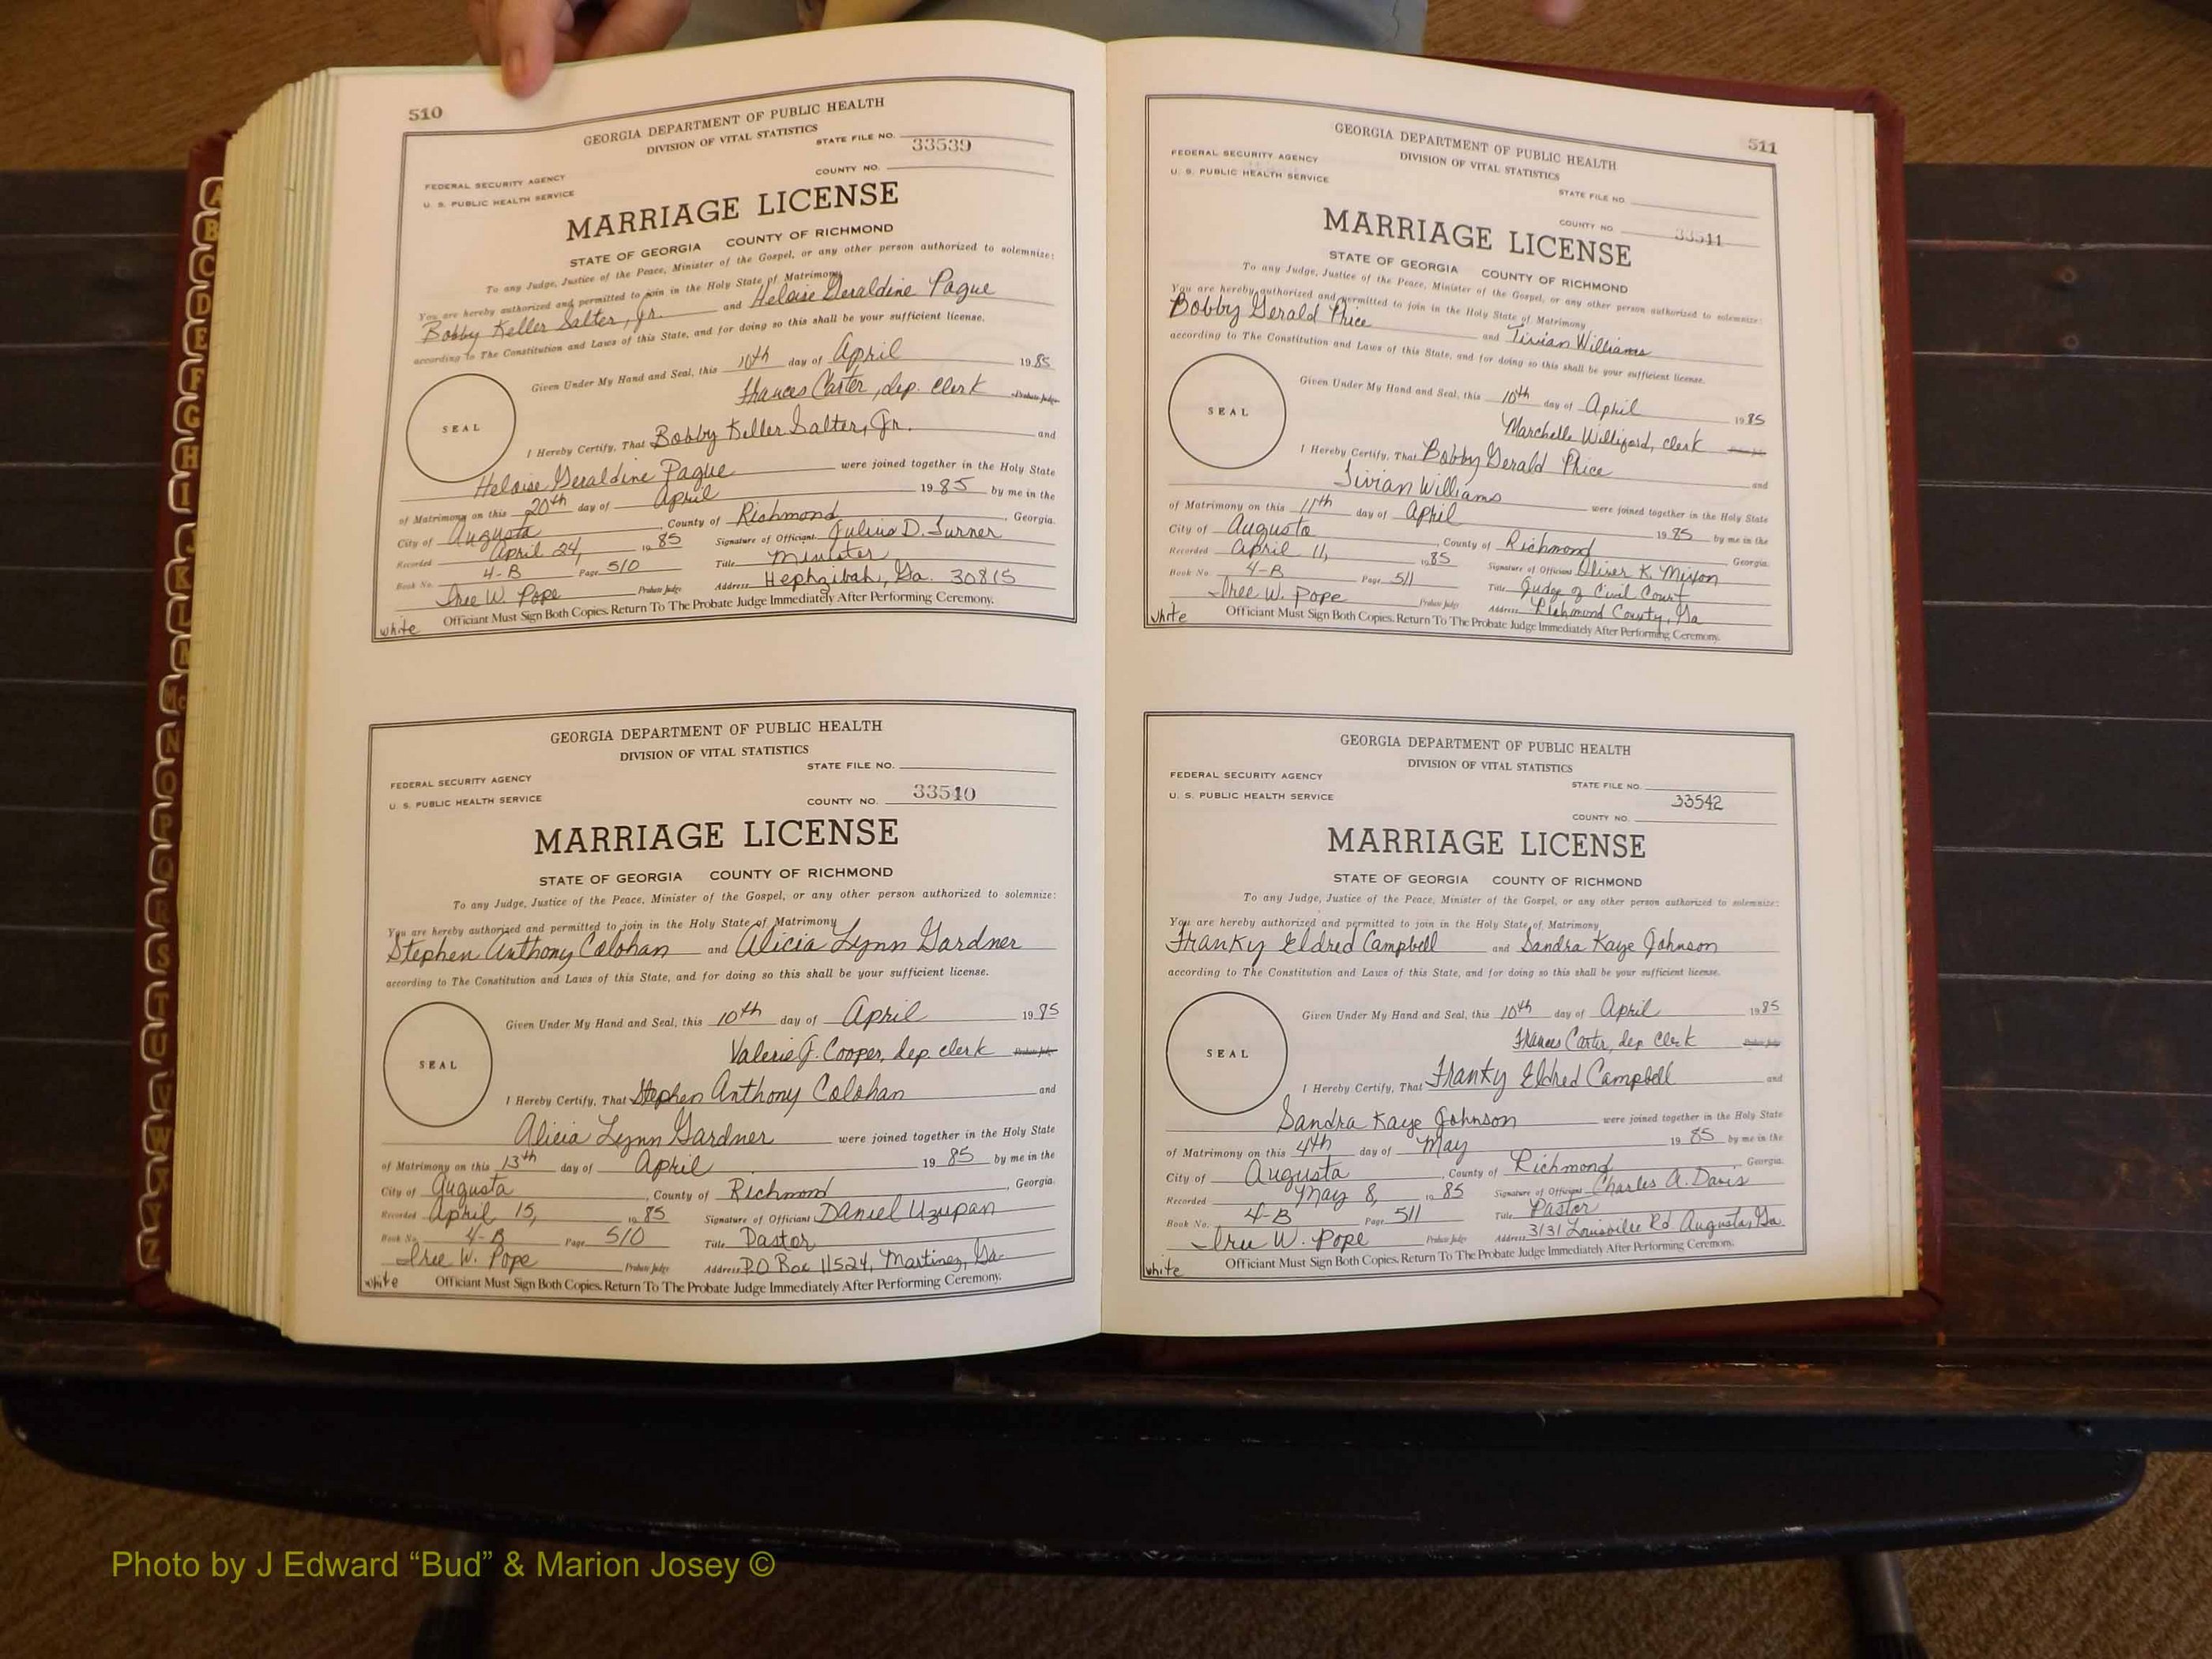 510
GEORGIA DEPARTMENT OF PUBLIC HEALTH
DIVISION OF VITAL STATISTICS
STATE FILE NO. 33539
FEDERAL SECURITY AGENCY
COUNTY NO.
U. S. PUBLIC HEALTH SERVICE
MARRIAGE LICENSE
STATE OF GEORGIA COUNTY OF RICHMOND
To any Judge, Justice of the Peace, Minister of the Gospel, or any other person authorized to solemnize:
You are hereby authorized and permitted to join in the Holy State of Matrimony
Bobby Keller Salter, Jr. and Heloise Geraldine Pague
according to The Constitution and Laws of this State, and for doing so this shall be your sufficient license.
Given Under My Hand and Seal, this 10th day of April 1985
Frances Carter, dep. clerk Probate Judge
SEAL
I Hereby Certify, That Bobby Keller Salter, Jr. and
Heloise Geraldine Pague were joined together in the Holy State
of Matrimony on this 20th day of April 1985 by me in the
City of Augusta, County of Richmond, Georgia.
Recorded April 24, 1985 Signature of Officiant Julius D. Turner
Book No. 4-B Page 510 Title Minister
Iree W. Pope Probate Judge Address Hephzibah, Ga. 30815
white Officiant Must Sign Both Copies. Return To The Probate Judge Immediately After Performing Ceremony.
GEORGIA DEPARTMENT OF PUBLIC HEALTH
DIVISION OF VITAL STATISTICS
STATE FILE NO.
FEDERAL SECURITY AGENCY
U. S. PUBLIC HEALTH SERVICE COUNTY NO. 33540
MARRIAGE LICENSE
STATE OF GEORGIA COUNTY OF RICHMOND
To any Judge, Justice of the Peace, Minister of the Gospel, or any other person authorized to solemnize:
You are hereby authorized and permitted to join in the Holy State of Matrimony
Stephen Anthony Colohan and Alicia Lynn Gardner
according to The Constitution and Laws of this State, and for doing so this shall be your sufficient license.
Given Under My Hand and Seal, this 10th day of April 1985
Valerie J. Cooper, dep clerk Probate Judge
SEAL
I Hereby Certify, That Stephen Anthony Colohan and
Alicia Lynn Gardner were joined together in the Holy State
of Matrimony on this 13th day of April 1985 by me in the
City of Augusta, County of Richmond, Georgia
Recorded April 15, 1985 Signature of Officiant Daniel Uzupan
Book No. 4-B Page 510 Title Pastor
Iree W. Pope Probate Judge Address P.O Box 11524, Martinez, Ga
white Officiant Must Sign Both Copies. Return To The Probate Judge Immediately After Performing Ceremony.
511
GEORGIA DEPARTMENT OF PUBLIC HEALTH
DIVISION OF VITAL STATISTICS
FEDERAL SECURITY AGENCY
U. S. PUBLIC HEALTH SERVICE
STATE FILE NO.
COUNTY NO. 33541
MARRIAGE LICENSE
STATE OF GEORGIA COUNTY OF RICHMOND
To any Judge, Justice of the Peace, Minister of the Gospel, or any other person authorized to solemnize:
You are hereby authorized and permitted to join in the Holy State of Matrimony
Bobby Gerald Price and Williams
according to The Constitution and Laws of this State, and for doing so this shall be your sufficient license.
Given Under My Hand and Seal, this 10th day of April 1985
Marchelle Williford, clerk
SEAL
I Hereby Certify, That Bobby Gerald Price and
Williams were joined together in the Holy State
of Matrimony on this 11th day of April 1985 by me in the
City of Augusta, County of Richmond Georgia.
Recorded April 11, 1985 Signature of Officiant Oliver K. Mixon
Book No. 4-B Page 511 Title Judge of Civil Court
Iree W. Pope Probate Judge Address Richmond County, Ga
white Officiant Must Sign Both Copies. Return To The Probate Judge Immediately After Performing Ceremony.
GEORGIA DEPARTMENT OF PUBLIC HEALTH
DIVISION OF VITAL STATISTICS
FEDERAL SECURITY AGENCY STATE FILE NO.
U. S. PUBLIC HEALTH SERVICE 33542
COUNTY NO.
MARRIAGE LICENSE
STATE OF GEORGIA COUNTY OF RICHMOND
To any Judge, Justice of the Peace, Minister of the Gospel, or any other person authorized to solemnize:
You are hereby authorized and permitted to join in the Holy State of Matrimony
Franky Eldred Campbell and Sandra Kaye Johnson
according to The Constitution and Laws of this State, and for doing so this shall be your sufficient license.
Given Under My Hand and Seal, this 10th day of April 1985
Frances Carter, dep clerk Probate Judge
SEAL
I Hereby Certify, That Franky Eldred Campbell and
Sandra Kaye Johnson were joined together in the Holy State
of Matrimony on this 4th day of May 1985 by me in the
City of Augusta, County of Richmond, Georgia.
Recorded May 8, 1985 Signature of Officiant Charles A. Davis
Book No. 4-B Page 511 Title Pastor
Iree W. Pope Probate Judge Address 3131 Louisville Rd Augusta, Ga.
white Officiant Must Sign Both Copies. Return To The Probate Judge Immediately After Performing Ceremony.
Photo by J Edward “Bud” & Marion Josey ©